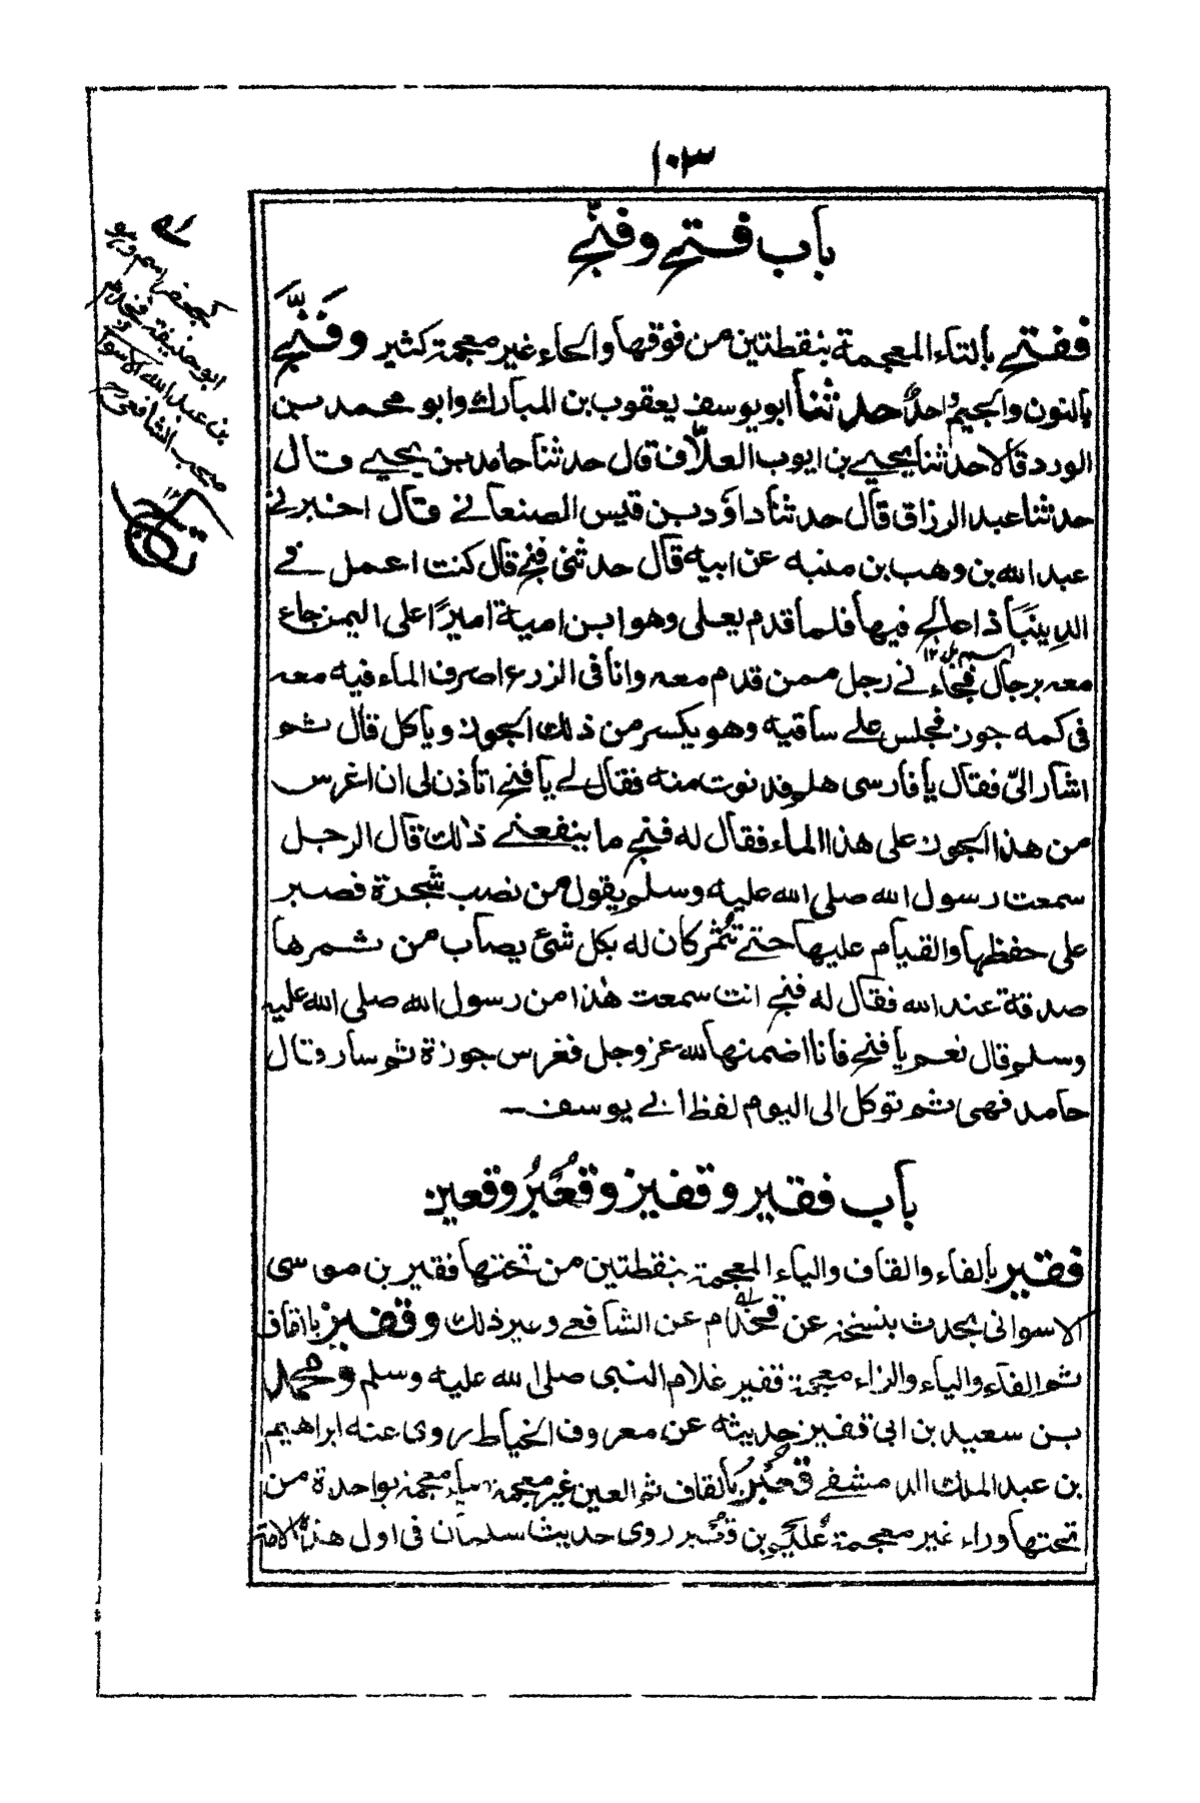 ١٠٣
باب فتح وفنّج
ففتح بالتاء المعجمة بنقطتين من فوقها والحاء غير معجمة كثير وفَنَّج
بالنون والجيم احدٌ حدثنا ابو يوسف يعقوب بن المبارك وابو محمد بن
الورد قالا حدثنا يحيى بن ايوب العلّاف قال حدثنا حامد بن يحيى قال
حدثنا عبد الرزاق قال حدثنا داؤد بن قيس الصنعاني قال اخبرني
عبد الله بن وهب بن منبه عن ابيه قال حدثنى فنج قال كنت اعمل في
الدِينَبَاذ اعالج فيها فلما قدم يعلى وهو ابن امية اميرًا على اليمن جاء
معه برجال فجاءني رجل ممن قدم معه وانا فى الزرع اصرف الماء فيه معه
فى كمه جوز فجلس على ساقيه وهو يكسر من ذلك الجوز وياكل قال ثم
اشار الىّ فقال يا فارسى هلم فدنوت منه فقال لي يا فنج اتاذن لى ان اغرس
من هذا الجوز على هذا الماء فقال له فنج ما ينفعني ذلك قال الرجل
سمعت رسول الله صلى الله عليه وسلم يقول من نصب شجرة فصبر
على حفظها والقيام عليها حتى تُثمر كان له بكل شئ يصاب من ثمرها
صدقة عند الله فقال له فنج انت سمعت هذا من رسول الله صلى الله عليه
وسلم قال نعم يا فنج فانا اضمنها لله عز وجل فغرس جوزة ثم سار وقال
حامد فهى ثم توكل الى اليوم لفظ ابي يوسف ـ
باب فقير وقفيز وقُعْبُر وقعين
فقير بالفاء والقاف والياء المعجمة بنقطتين من تحتها فقير بن موسى
الاسوانى يحدث بنسخة عن قحزم عن الشافعي وغير ذلك وقفيز بالقاف
ثم الفاء والياء والزاء معجمة قفيز غلام النبى صلى الله عليه وسلم ومحمد
بن سعيد بن ابى قفيز حديثه عن معروف الخياط روى عنه ابراهيم
بن عبد الملك الدمشقي قُعْبُر بالقاف ثم العين غير معجمة بباء معجمة بواحدة من
تحتها وراء غير معجمة عُليم بن قعبر روى حديث سلمان فى اول هذه الامة
كجعفر اسم وهو
ابو حنيفة قحزم
بن عبد الله الاسواني
صحب الشافعي
١٢